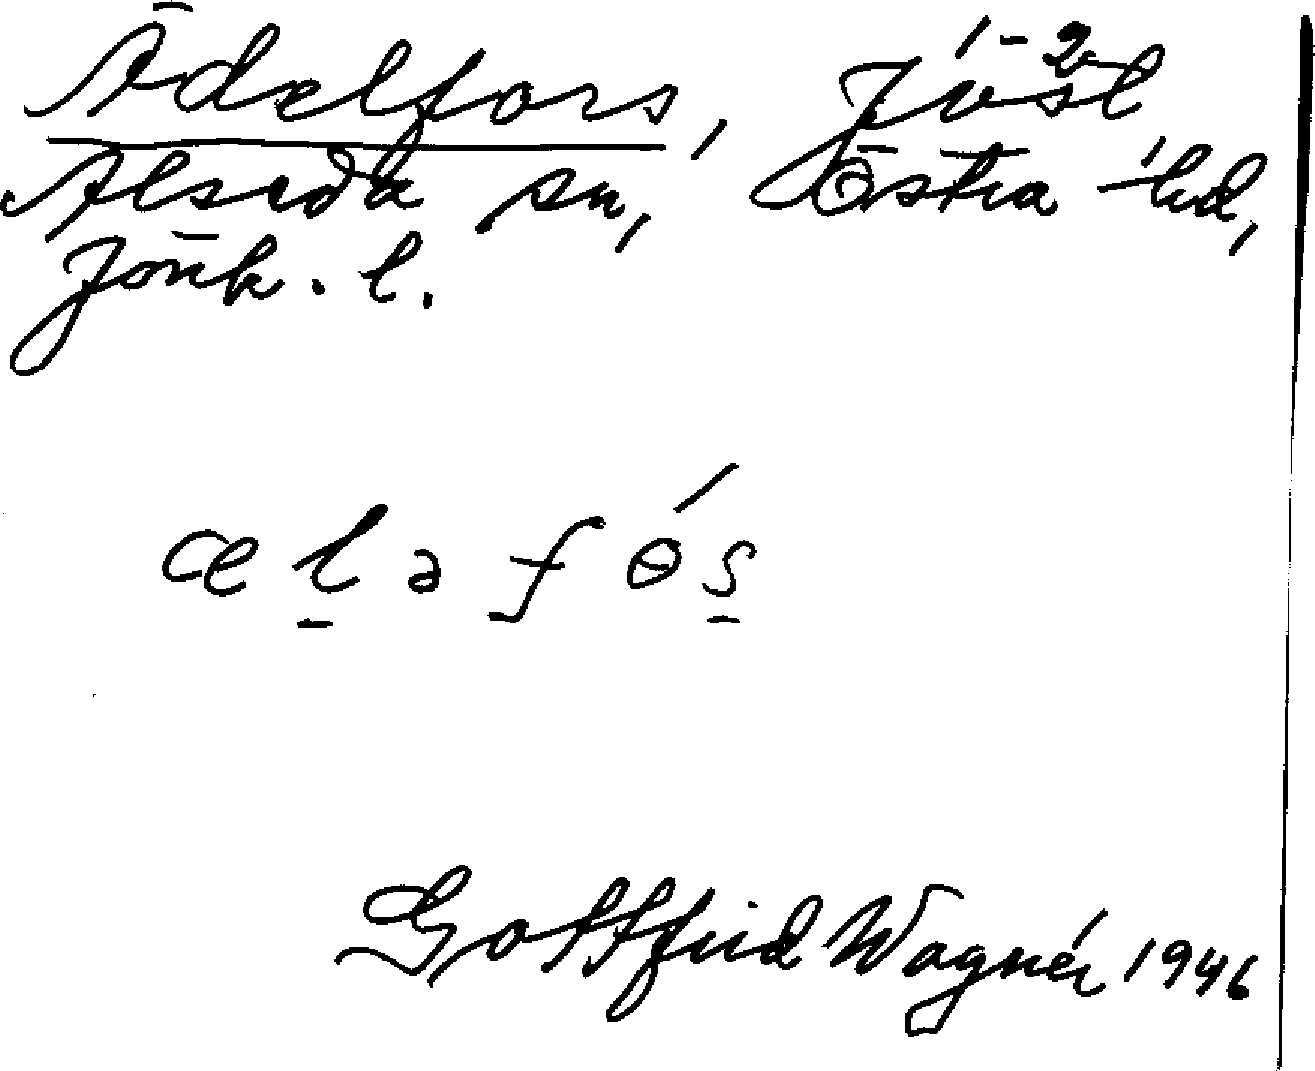 Ädelfors, 1-2 jvsl
Alseda sn, Östra hd,
Jönk. l.
æl̠əfɵ́s̠
Gottfrid Wagnér 1946